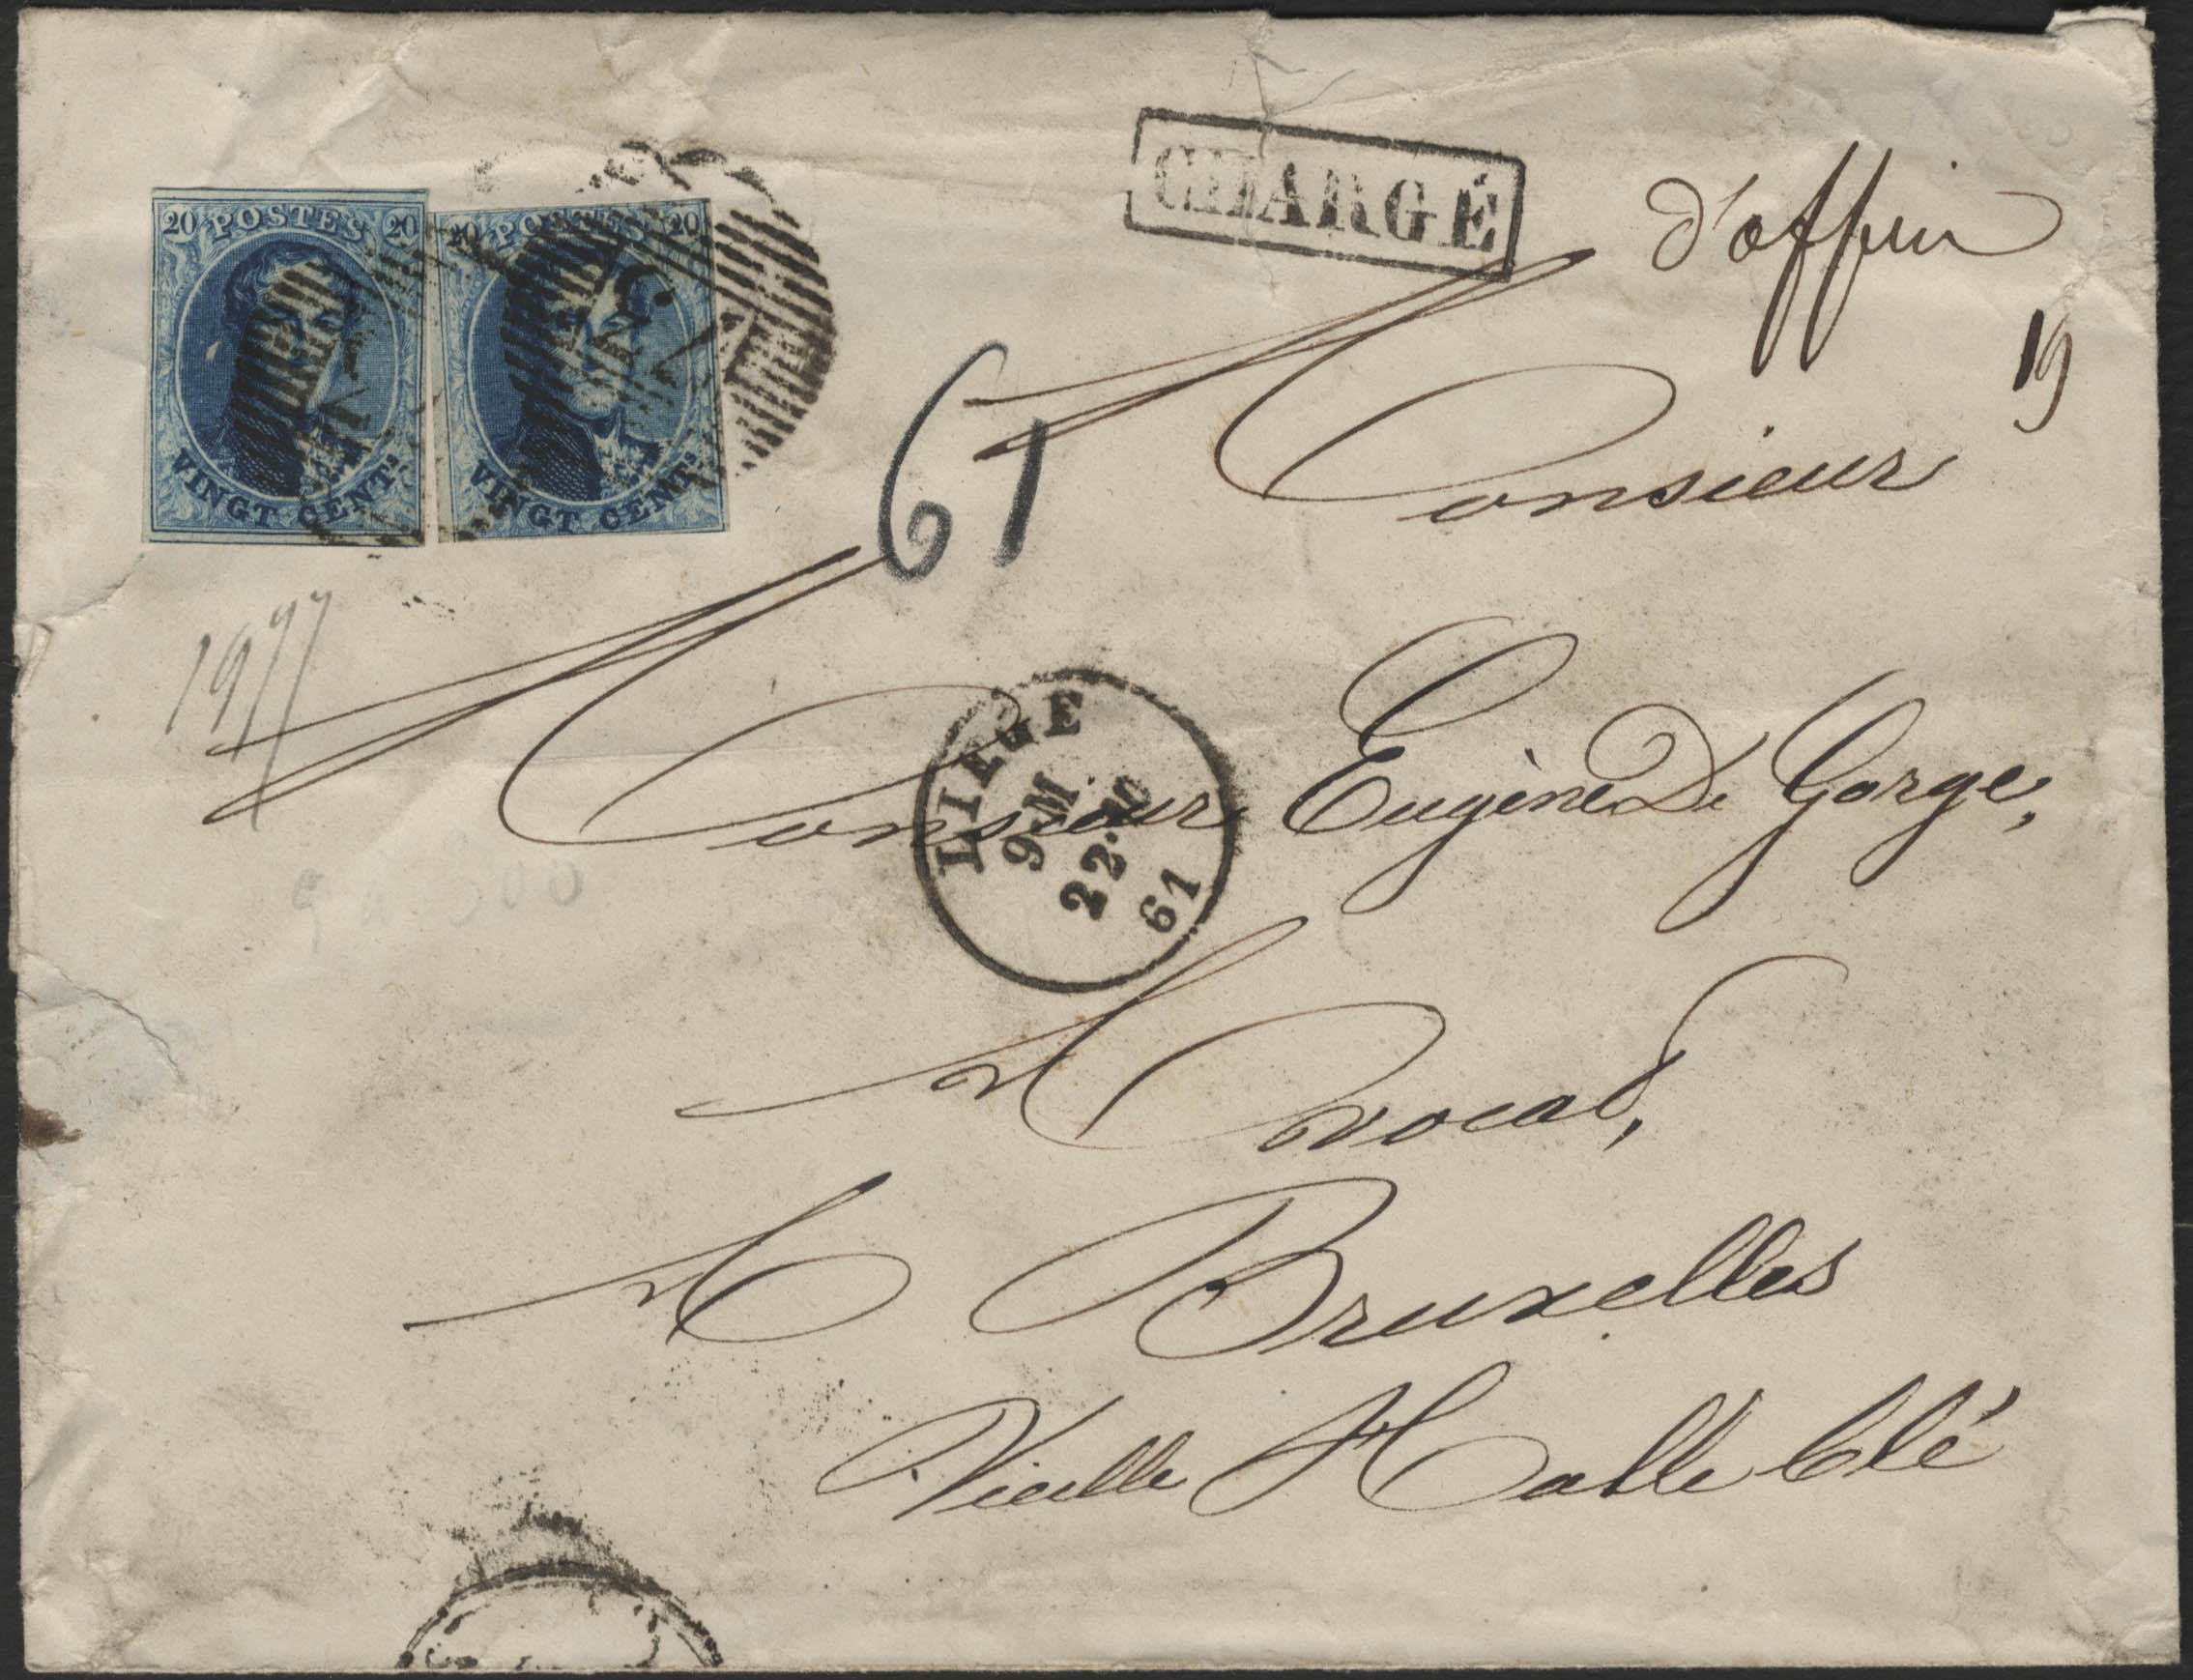 20 POSTES 20
VINGT CENTS
20 POSTES 20
VINGT CENTS
CHARGÉ
d'office
19
61
Monsieur
Monsieur Eugène De Gorge,
LIEGE
9 M
22 10
61
Avocat,
A Bruxelles
Vieille Halle blé